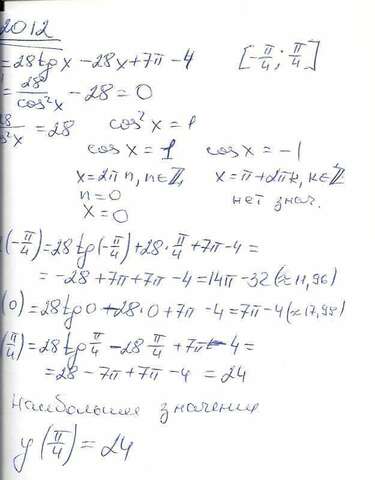 2012
=28tgx -28x+7π -4 [-π/4; π/4]
28/cos²x - 28 = 0
28/cos²x = 28 cos²x = 1
cosx = 1 cosx = -1
x=2πn, n∈Z, x=π+2πk, k∈Z
n=0 нет знач.
x=0
(-π/4)=28tg(-π/4)+28·π/4+7π-4=
= -28+7π+7π -4=14π-32(≈11,96)
(0)=28tg0+28·0+7π-4=7π-4(≈17,98)
(π/4)=28tgπ/4-28π/4+7π-4=
=28-7π+7π-4 = 24
наибольшее значение
y(π/4)=24